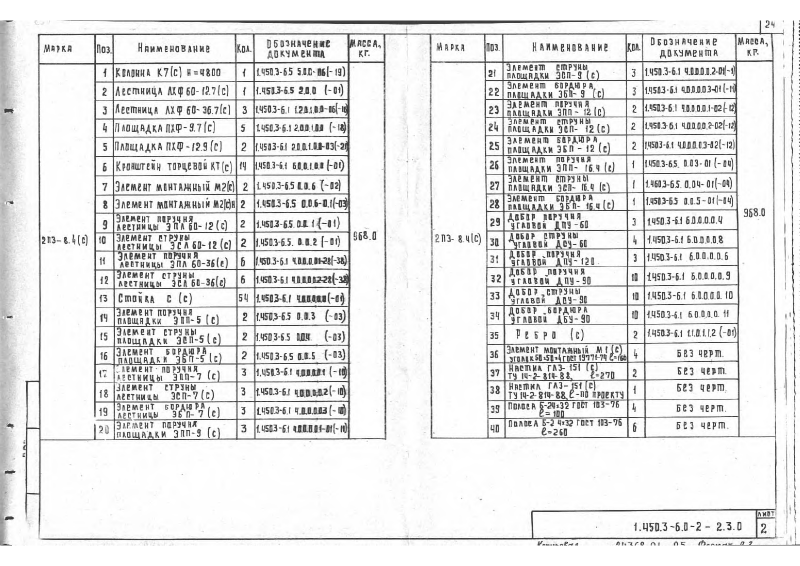 24
МАРКА ПОЗ. НАИМЕНОВАНИЕ КОЛ. ОБОЗНАЧЕНИЕ ДОКУМЕНТА МАССА, КГ.
2ПЭ-8.4(с) 968.0
1 КОЛОННА К7(с) Н=4800 1 1.450.3-6.5 5.0.0-06(-19)
2 ЛЕСТНИЦА ЛХФ 60-12.7(с) 1 1.450.3-6.5 2.0.0 (-01)
3 ЛЕСТНИЦА ЛХФ 60-36.7(с) 3
4 ПЛОЩАДКА ПХФ-9.7(с) 5 1.450.3-6.1 2.0.0.1.0.0 (-18)
5 ПЛОЩАДКА ПХФ-12.9(с) 2
6 КРОНШТЕЙН ТОРЦЕВОЙ КТ(с) 14 1.450.3-6.1 6.0.0.1.0.0 (-01)
7 ЭЛЕМЕНТ МОНТАЖНЫЙ М2(с) 2 1.450.3-6.5 0.0.6 (-02)
8 ЭЛЕМЕНТ МОНТАЖНЫЙ М2(с)Н 2 1.450.3-6.5 0.0.6-0.1(-03)
9 ЭЛЕМЕНТ ПОРУЧНЯ ЛЕСТНИЦЫ ЭПЛ 60-12(с) 2 1.450.3-6.5 0.0.1 (-01)
10 ЭЛЕМЕНТ СТРУНЫ ЛЕСТНИЦЫ ЭСЛ 60-12(с) 2 1.450.3-6.5 0.0.2 (-01)
11 ЭЛЕМЕНТ ПОРУЧНЯ ЛЕСТНИЦЫ ЭПЛ 60-36(с) 6
12 ЭЛЕМЕНТ СТРУНЫ ЛЕСТНИЦЫ ЭСЛ 60-36(с) 6
13 СТОЙКА С (с) 54 1.450.3-6.1 4.0.0.0.0 (-01)
14 ЭЛЕМЕНТ ПОРУЧНЯ ПЛОЩАДКИ ЭПП-5(с) 2 1.450.3-6.5 0.0.3 (-03)
15 ЭЛЕМЕНТ СТРУНЫ ПЛОЩАДКИ ЭСП-5(с) 2 1.450.3-6.5 0.0.4 (-03)
16 ЭЛЕМЕНТ БОРДЮРА ПЛОЩАДКИ ЭБП-5(с) 2 1.450.3-6.5 0.0.5 (-03)
17 ЭЛЕМЕНТ ПОРУЧНЯ ЛЕСТНИЦЫ ЭПП-7(с) 3 1.450.3-6.1 4.0.0.0.1 (-10)
18 ЭЛЕМЕНТ СТРУНЫ ЛЕСТНИЦЫ ЭСП-7(с) 3 1.450.3-6.1 4.0.0.0.2 (-10)
19 ЭЛЕМЕНТ БОРДЮРА ЛЕСТНИЦЫ ЭБП-7(с) 3 1.450.3-6.1 4.0.0.0.3 (-10)
20 ЭЛЕМЕНТ ПОРУЧНЯ ПЛОЩАДКИ ЭПП-9(с) 3 1.450.3-6.1 4.0.0.0.1-01(-11)
МАРКА ПОЗ. НАИМЕНОВАНИЕ КОЛ. ОБОЗНАЧЕНИЕ ДОКУМЕНТА МАССА, КГ.
2ПЭ-8.4(с) 968.0
21 ЭЛЕМЕНТ СТРУНЫ ПЛОЩАДКИ ЭСП-9(с) 3 1.450.3-6.1 4.0.0.0.0.2-01(-11)
22 ЭЛЕМЕНТ БОРДЮРА ПЛОЩАДКИ ЭБП-9(с) 3 1.450.3-6.1 4.0.0.0.0.3-01(-11)
23 ЭЛЕМЕНТ ПОРУЧНЯ ПЛОЩАДКИ ЭПП-12(с) 2 1.450.3-6.1 4.0.0.0.0.1-02(-12)
24 ЭЛЕМЕНТ СТРУНЫ ПЛОЩАДКИ ЭСП-12(с) 2 1.450.3-6.1 4.0.0.0.0.2-02(-12)
25 ЭЛЕМЕНТ БОРДЮРА ПЛОЩАДКИ ЭБП-12(с) 2 1.450.3-6.1 4.0.0.0.0.3-02(-12)
26 ЭЛЕМЕНТ ПОРУЧНЯ ПЛОЩАДКИ ЭПП-16.4(с) 1 1.450.3-6.5. 0.0.3-01(-04)
27 ЭЛЕМЕНТ СТРУНЫ ПЛОЩАДКИ ЭСП-16.4(с) 1 1.450.3-6.5. 0.04-01(-04)
28 ЭЛЕМЕНТ БОРДЮРА ПЛОЩАДКИ ЭБП-16.4(с) 1 1.450.3-6.5 0.0.5-01(-04)
29 ДОБОР ПОРУЧНЯ УГЛОВОЙ ДПУ-60 3 1.450.3-6.1 6.0.0.0.0.4
30 ДОБОР СТРУНЫ УГЛОВОЙ ДСУ-60 4 1.450.3-6.1 6.0.0.0.0.8
31 ДОБОР ПОРУЧНЯ УГЛОВОЙ ДПУ-120 3 1.450.3-6.1 6.0.0.0.0.6
32 ДОБОР ПОРУЧНЯ УГЛОВОЙ ДПУ-90 10 1.450.3-6.1 6.0.0.0.0.9
33 ДОБОР СТРУНЫ УГЛОВОЙ ДСУ-90 10 1.450.3-6.1 6.0.0.0.0.10
34 ДОБОР БОРДЮРА УГЛОВОЙ ДБУ-90 10 1.450.3-6.1 6.0.0.0.0.11
35 РЕБРО (с) 2 1.450.3-6.1 1.1.0.1.1.2 (-01)
36 ЭЛЕМЕНТ МОНТАЖНЫЙ М1(с) 4 БЕЗ ЧЕРТ.
37 НАСТИЛ ГАЗ-151(с) ТУ 14-2-814-88. ℓ=270 2 БЕЗ ЧЕРТ.
38 НАСТИЛ ГАЗ-151(с) ТУ 14-2-814-88. ℓ-ПО ПРОЕКТУ 1 БЕЗ ЧЕРТ.
39 ПОЛОСА Б-2 4×32 ГОСТ 103-76 ℓ=100 4 БЕЗ ЧЕРТ.
40 ПОЛОСА Б-2 4×32 ГОСТ 103-76 ℓ=260 6 БЕЗ ЧЕРТ.
1.450.3-6.0-2-2.3.0
ЛИСТ
2